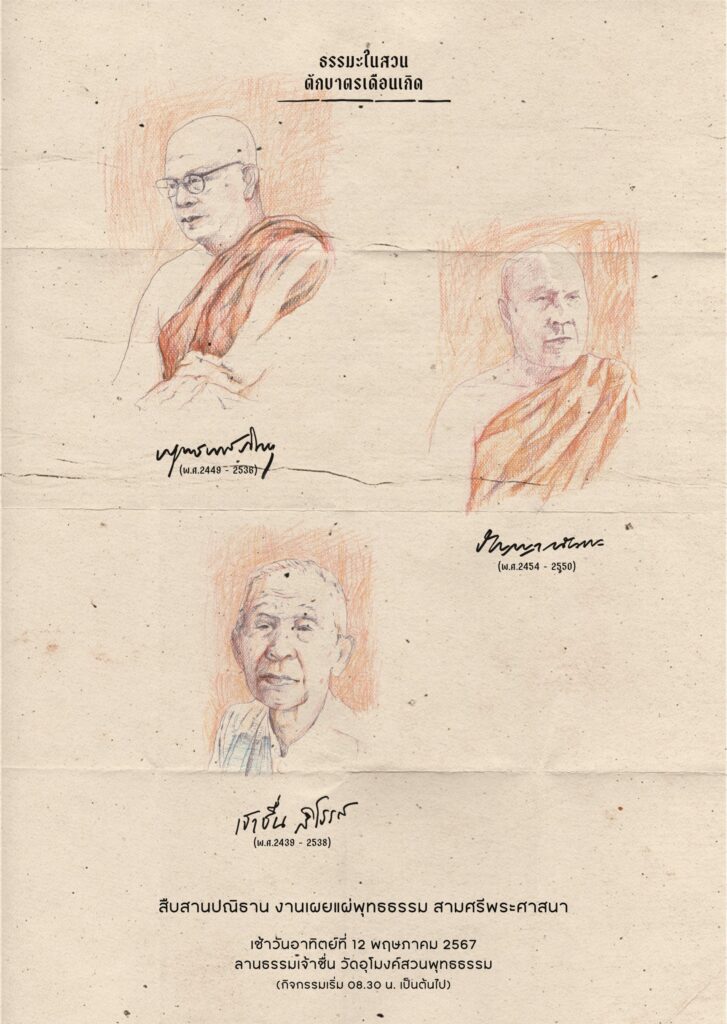 ธรรมะในสวน
ตักบาตรเดือนเกิด
พุทธทาสภิกขุ
(พ.ศ.2449 - 2536)
ปัญญานันทะ
(พ.ศ.2454 - 2550)
เจ้าชื่น สิโรรส
(พ.ศ.2439 - 2538)
สืบสานปณิธาน งานเผยแผ่พุทธธรรม สามศรีพระศาสนา
เช้าวันอาทิตย์ที่ 12 พฤษภาคม 2567
ลานธรรมเจ้าชื่น วัดอุโมงค์สวนพุทธธรรม
(กิจกรรมเริ่ม 08.30 น. เป็นต้นไป)